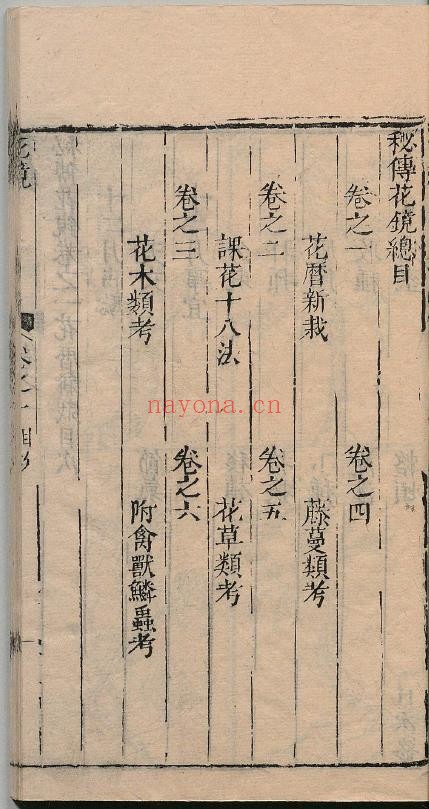 秘傳花鏡總目
卷之一
卷之四
花曆新栽
藤蔓類考
卷之二
卷之五
課花十八法
花草類考
卷之三
卷之六
花木類考
附禽獸鱗蟲考
花鏡
nayona.cn